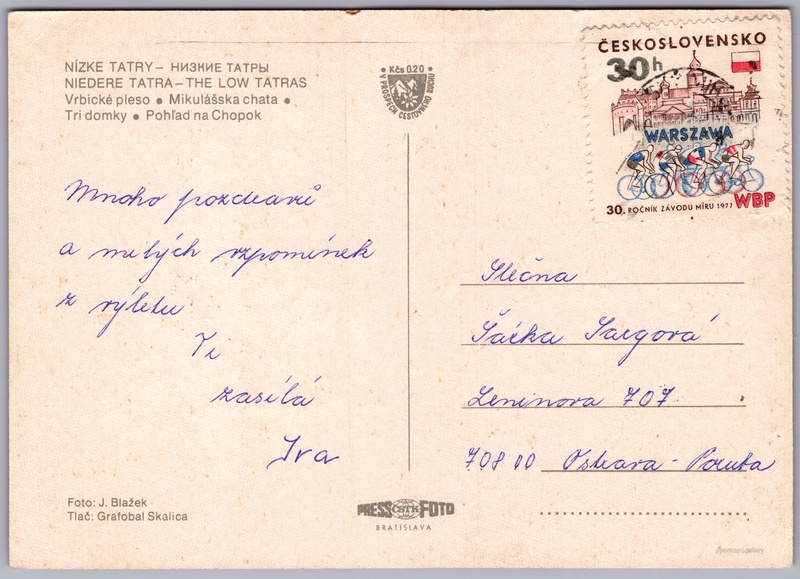 NÍZKE TATRY – НИЗКИЕ ТАТРЫ
NIEDERE TATRA – THE LOW TATRAS
Vrbické pleso • Mikulášska chata •
Tri domky • Pohľad na Chopok
Kčs 0.20
V PROSPECH CESTOVNÉHO RUCHU
ČESKOSLOVENSKO
30h
WARSZAWA
30. ROČNÍK ZÁVODU MÍRU 1977 WBP
Mnoho pozdravů
a milých vzpomínek
z výletu
Ti
zasílá
Iva
Slečna
Šárka Sargová
Leninova 707
708 00 Ostrava - Poruba
Foto: J. Blažek
Tlač: Grafobal Skalica
PRESS ČSTK FOTO
BRATISLAVA